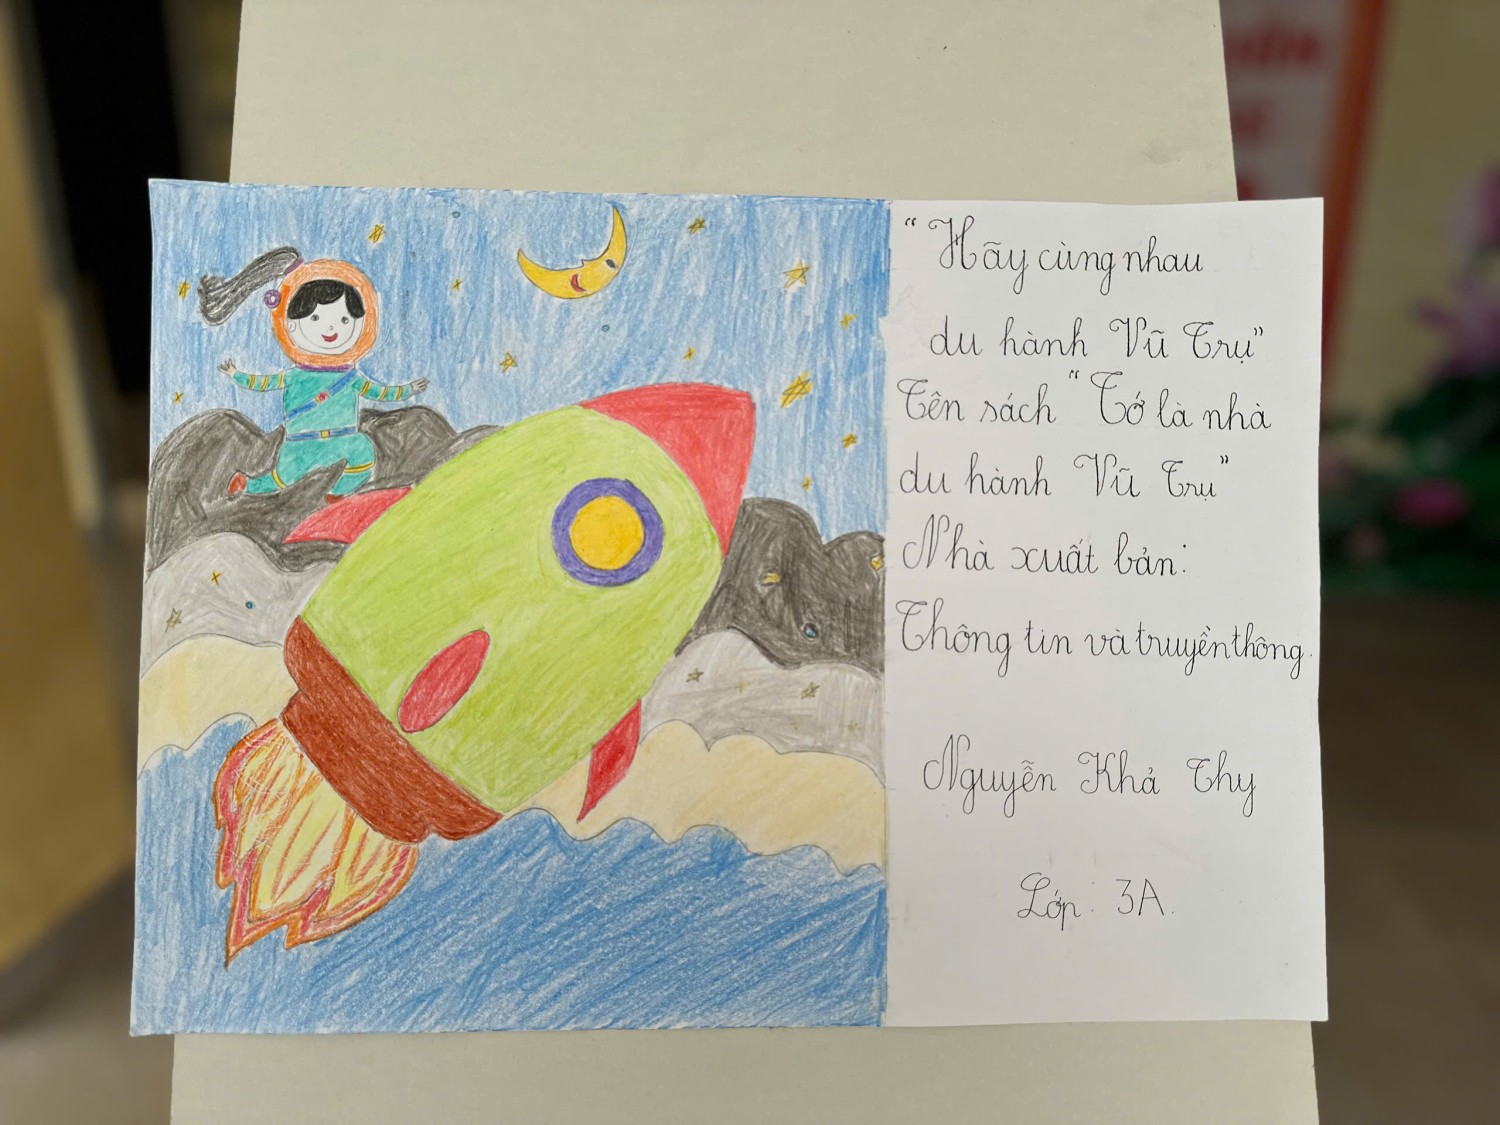 “Hãy cùng nhau
du hành Vũ Trụ”
Tên sách “Tớ là nhà
du hành Vũ Trụ”
Nhà xuất bản:
Thông tin và truyền thông.
Nguyễn Khả Thy
Lớp: 3A.